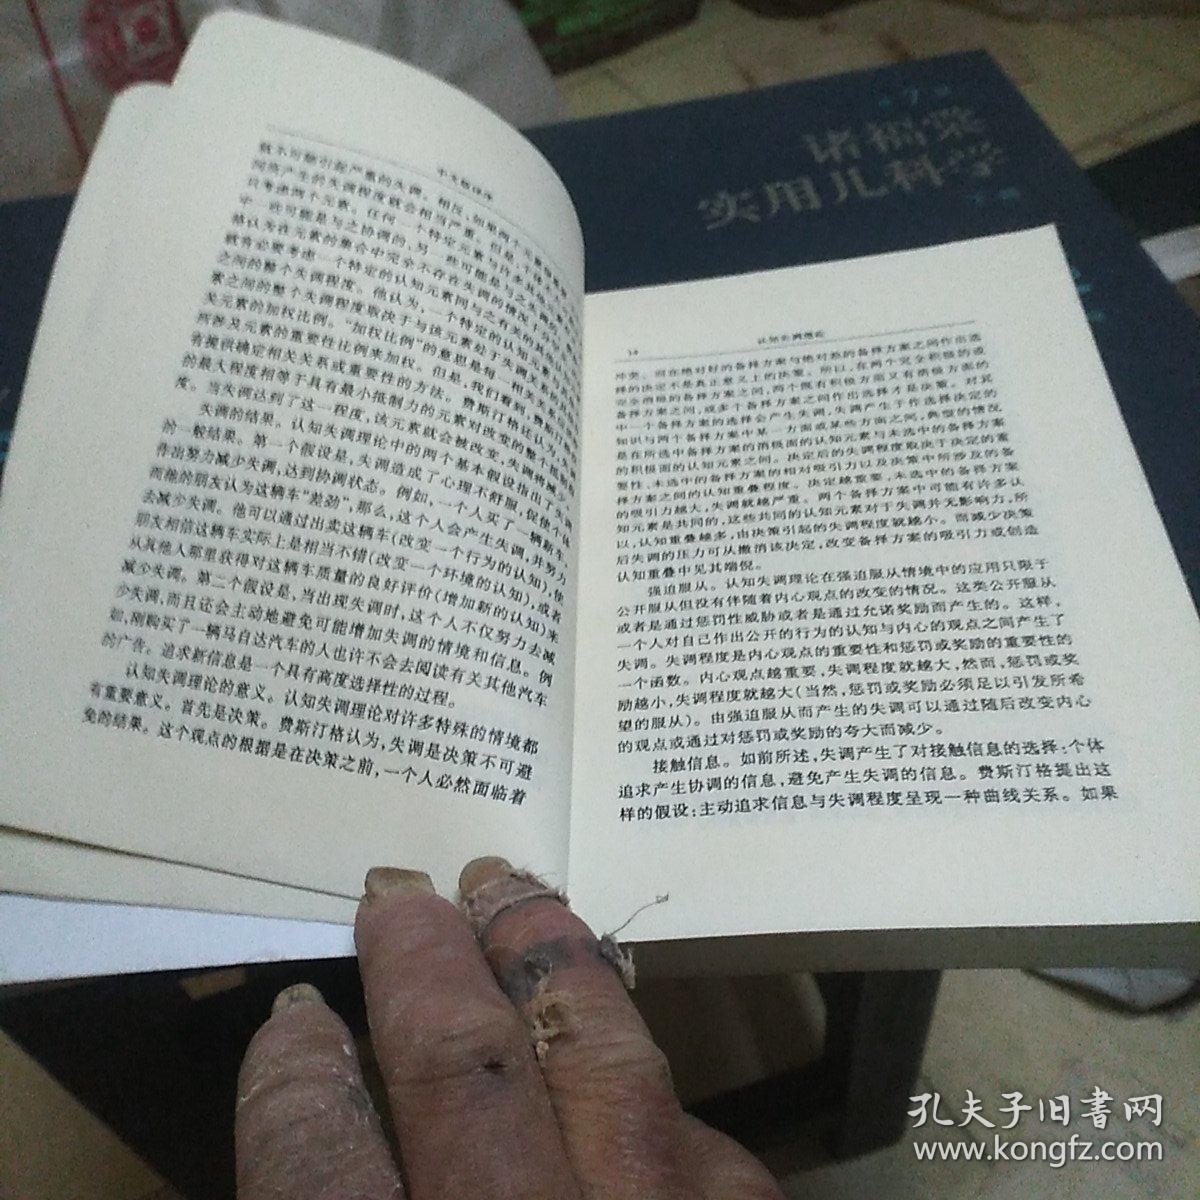 中文版译序
就不可能引起严重的失调。相反,如果两个元素
间所产生的失调程度就会相当严重。但是,个体
只考虑两个元素。任何一个特定元素与许多其他
中一些可能是与之协调的,另一些可能是与之失调
格认为在元素的集合中完全不存在失调的情况
就有必要考虑一个特定的认知元素同与之有关的其他
之间的整个失调程度。他认为,一个特定的认知元素与
素之间的整个失调程度取决于与该元素处于失调关系的
关元素的加权比例。“加权比例”的意思是每一相关关系
所涉及元素的重要性比例来加权。但是,我们看到,费斯汀格
有提供确定相关关系或重要性的方法。费斯汀格还认为,失调
的最大程度相等于具有最小抵制力的元素对改变的整个抵制
度。当失调达到了这一程度,该元素就会被改变,失调将减少
失调的结果。认知失调理论中的两个基本假设指出了失调
的一般结果。第一个假设是,失调造成了心理不舒服,促使个体
作出努力减少失调,达到协调状态。例如,一个人买了一辆新车,
而他的朋友认为这辆车“差劲”,那么,这个人会产生失调,并努力
去减少失调。他可以通过出卖这辆车(改变一个行为的认知),使
朋友相信这辆车实际上是相当不错(改变一个环境的认知),或者
从其他人那里获得对这辆车质量的良好评价(增加新的认知)来
减少失调。第二个假设是,当出现失调时,这个人不仅努力去减
少失调,而且还会主动地避免可能增加失调的情境和信息。例
如,刚购买了一辆马自达汽车的人也许不会去阅读有关其他汽车
的广告。追求新信息是一个具有高度选择性的过程。
认知失调理论的意义。认知失调理论对许多特殊的情境都
有重要意义。首先是决策。费斯汀格认为,失调是决策不可避
免的结果。这个观点的根据是在决策之前,一个人必然面临着
14 认知失调理论
冲突。而在绝对好的备择方案与绝对差的备择方案之间作出选
择的决定不是真正意义上的决策。所以,在两个完全积极的或
完全消极的备择方案之间,两个既有积极方面又有消极方面的
备择方案之间,或多个备择方案之间作出选择才是决策。对其
中一个备择方案的选择会产生失调,失调产生于作选择决定的
知识与两个备择方案中某一方面或某些方面之间,典型的情况
是在所选中备择方案的消极面的认知元素与未选中的备择方案
的积极面的认知元素之间。决定后的失调程度取决于决定的重
要性,未选中的备择方案的相对吸引力以及决策中所涉及的备
择方案之间的认知重叠程度。决定越重要,未选中的备择方案
的吸引力越大,失调就越严重。两个备择方案中可能有许多认
知元素是共同的,这些共同的认知元素对于失调并无影响力,所
以,认知重叠越多,由决策引起的失调程度就越小。而减少决策
后失调的压力可从撤消该决定,改变备择方案的吸引力或创造
认知重叠中见其端倪。
强迫服从。认知失调理论在强迫服从情境中的应用只限于
公开服从但没有伴随着内心观点的改变的情况。这类公开服从
或者是通过惩罚性威胁或者是通过允诺奖励而产生的。这样,
一个人对自己作出公开的行为的认知与内心的观点之间产生了
失调。失调程度是内心观点的重要性和惩罚或奖励的重要性的
一个函数。内心观点越重要,失调程度就越大,然而,惩罚或奖
励越小,失调程度就越大(当然,惩罚或奖励必须足以引发所希
望的服从)。由强迫服从而产生的失调可以通过随后改变内心
的观点或通过对惩罚或奖励的夸大而减少。
接触信息。如前所述,失调产生了对接触信息的选择:个体
追求产生协调的信息,避免产生失调的信息。费斯汀格提出这
样的假设:主动追求信息与失调程度呈现一种曲线关系。如果
诸福棠
实用儿科学
孔夫子旧書网
www.kongfz.com